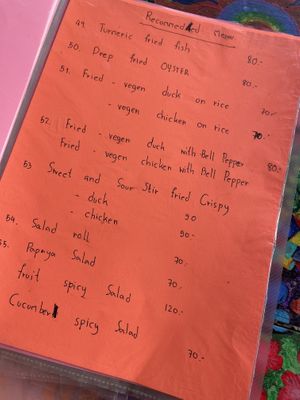 Recommended Menu
49. Turmeric fried fish 80.-
50. Deep fried OYSTER 80.-
51. Fried - vegen duck on rice 70.-
- vegen chicken on rice 70.-
52. Fried - vegen duck with Bell Pepper
Fried - vegen chicken with Bell Pepper 80.-
53 Sweet and Sour Stir fried Crispy
- duck 90
- chicken 90.-
54. Salad roll 70.-
55. Papaya Salad 70.-
fruit spicy Salad 120.-
Cucumber spicy Salad 70.-